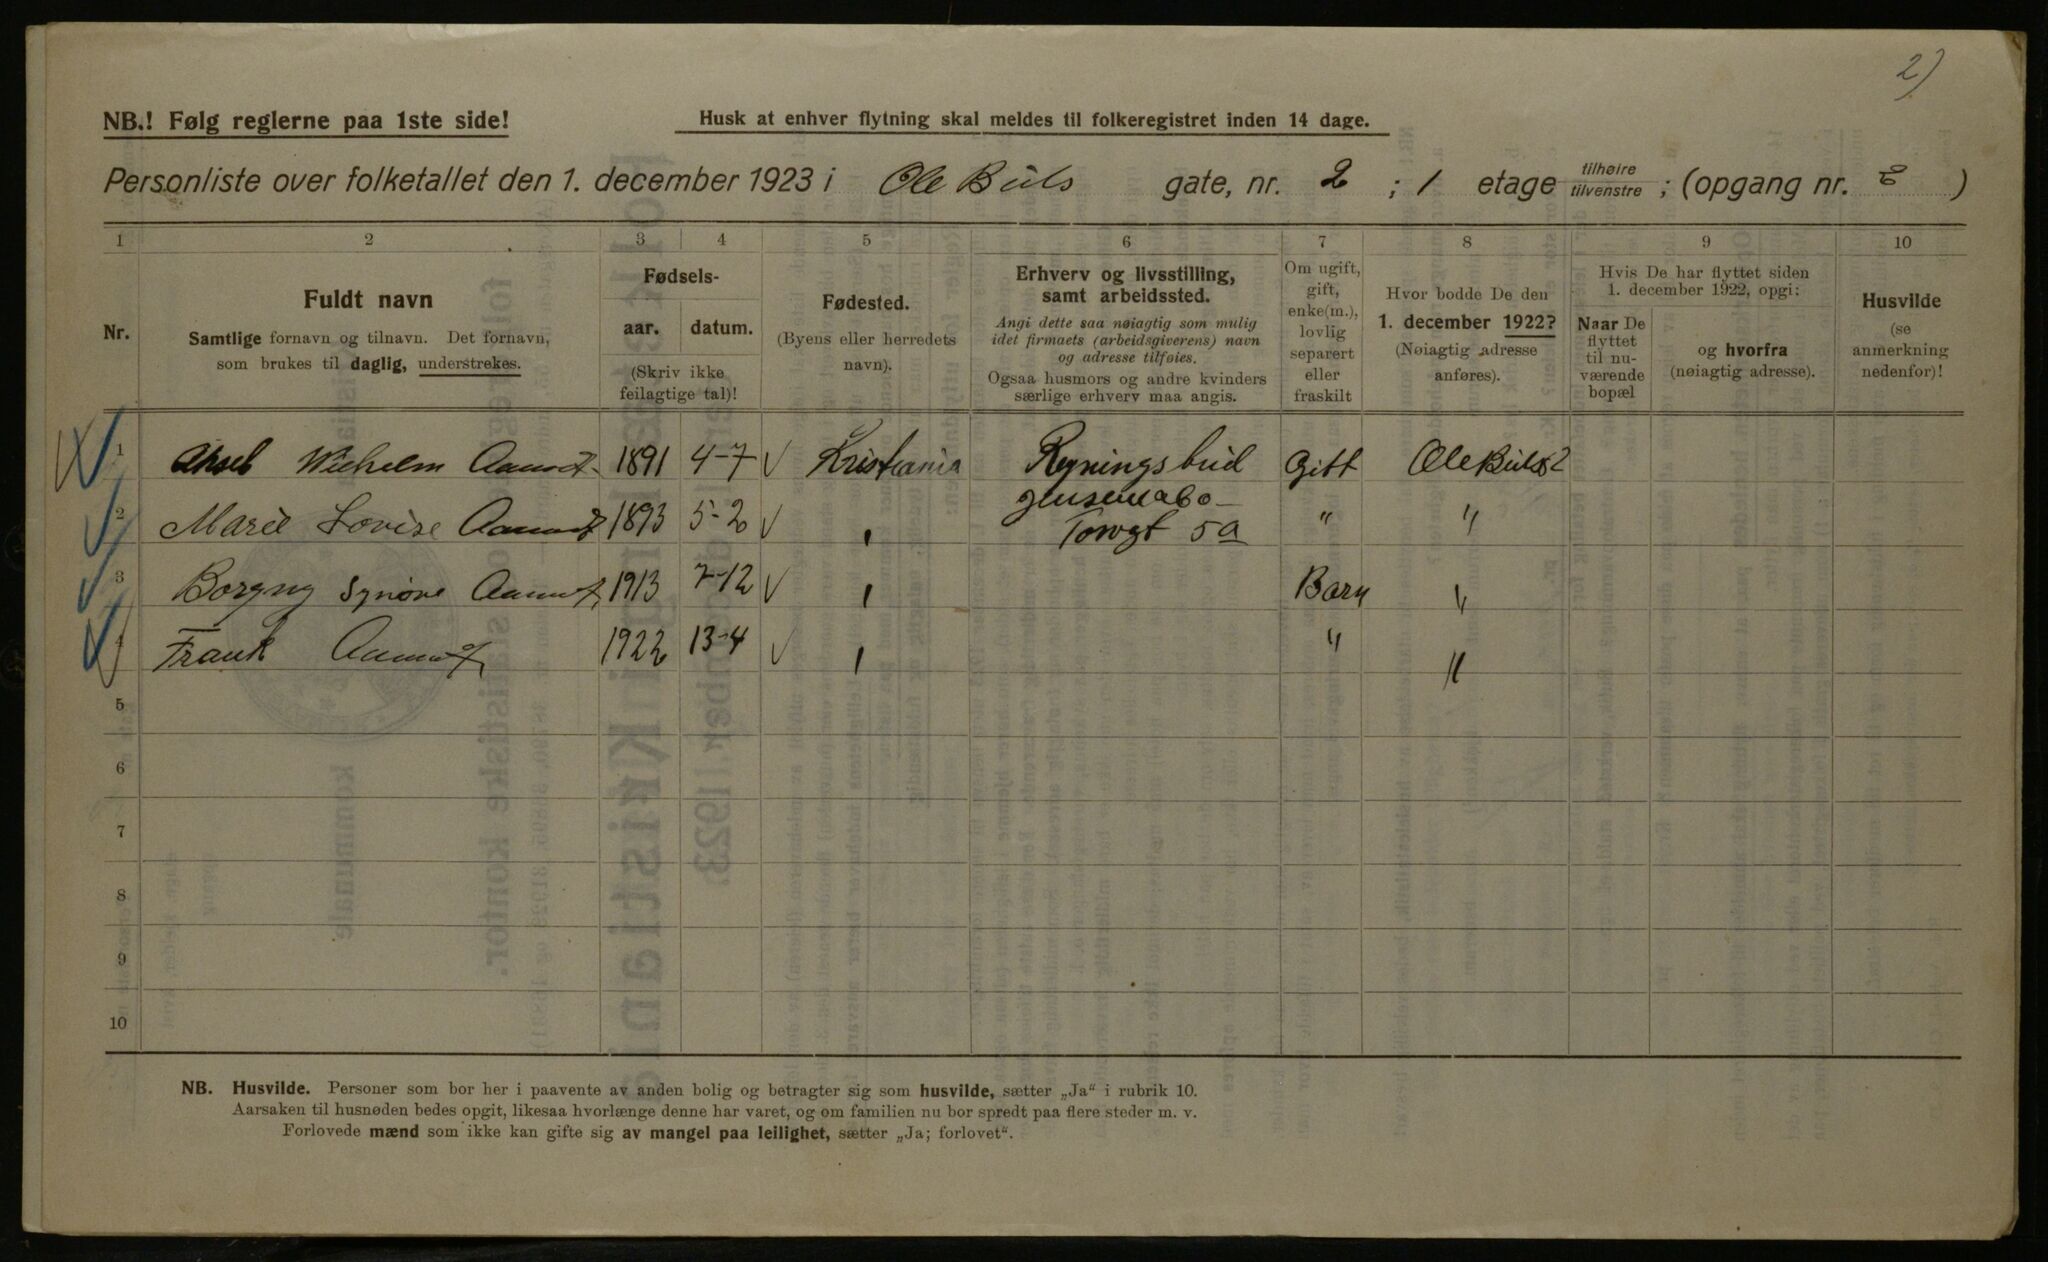 2)
NB.! Følg reglerne paa 1ste side!
Husk at enhver flytning skal meldes til folkeregistret inden 14 dage.
Personliste over folketallet den 1. december 1923 i Ole Buls gate, nr. 2 ; 1 etage tilhøire tilvenstre ; (opgang nr. )
1 2 3 4 5 6 7 8 9 10
Nr.
Fuldt navn
Samtlige fornavn og tilnavn. Det fornavn,
som brukes til daglig, understrekes.
Fødsels-
aar. datum.
(Skriv ikke
feilagtige tal)!
Fødested.
(Byens eller herredets
navn).
Erhverv og livsstilling,
samt arbeidssted.
Angi dette saa nøiagtig som mulig
idet firmaets (arbeidsgiverens) navn
og adresse tilføies.
Ogsaa husmors og andre kvinders
særlige erhverv maa angis.
Om ugift,
gift,
enke(m.),
lovlig
separert
eller
fraskilt
Hvor bodde De den
1. december 1922?
(Nøiagtig adresse
anføres).
Hvis De har flyttet siden
1. december 1922, opgi:
Naar De
flyttet
til nu-
værende
bopæl
og hvorfra
(nøiagtig adresse).
Husvilde
(se
anmerkning
nedenfor)!
1 Aksel Wilhelm Aamodt 1891 4-7 Kristiania Regningsbud Gift Ole Buls 2
2 Marie Lovise Aamodt 1893 5-2 Torvgt 5a " "
3 Borgny Synøve Aamodt 1913 7-12 Barn "
4 Frank Aamodt 1922 13-4 " "
5
6
7
8
9
10
NB. Husvilde. Personer som bor her i paavente av anden bolig og betragter sig som husvilde, sætter „Ja" i rubrik 10.
Aarsaken til husnøden bedes opgit, likesaa hvorlænge denne har varet, og om familien nu bor spredt paa flere steder m. v.
Forlovede mænd som ikke kan gifte sig av mangel paa leilighet, sætter „Ja; forlovet".